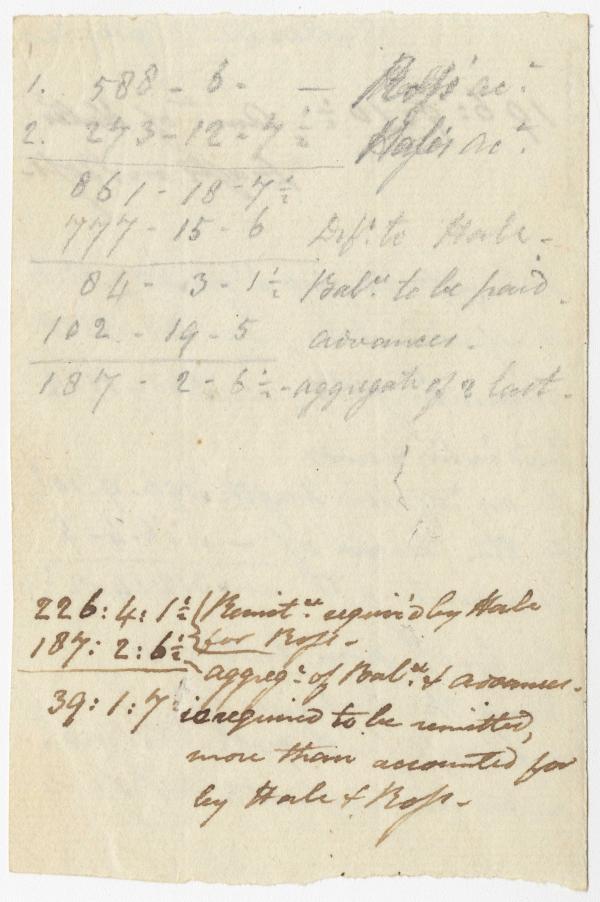 1. 588 - 6 - — Ross's act.
2. 273 - 12 - 7 1/2 Hale's act.
861 - 18 - 7 1/2
777 - 15 - 6 to Hale -
84 - 3 - 1 1/2 Balce. to be paid.
102 - 19 - 5 advances.
187 - 2 - 6 1/2 - aggregate of 2 last.
226: 4: 1 1/2 Remitce. required by Hale
187: 2: 6 1/2 for Ross -
aggregt. of Balce. & advances.
39: 1: 7 is required to be remitted,
more than accounted for
by Hale & Ross -